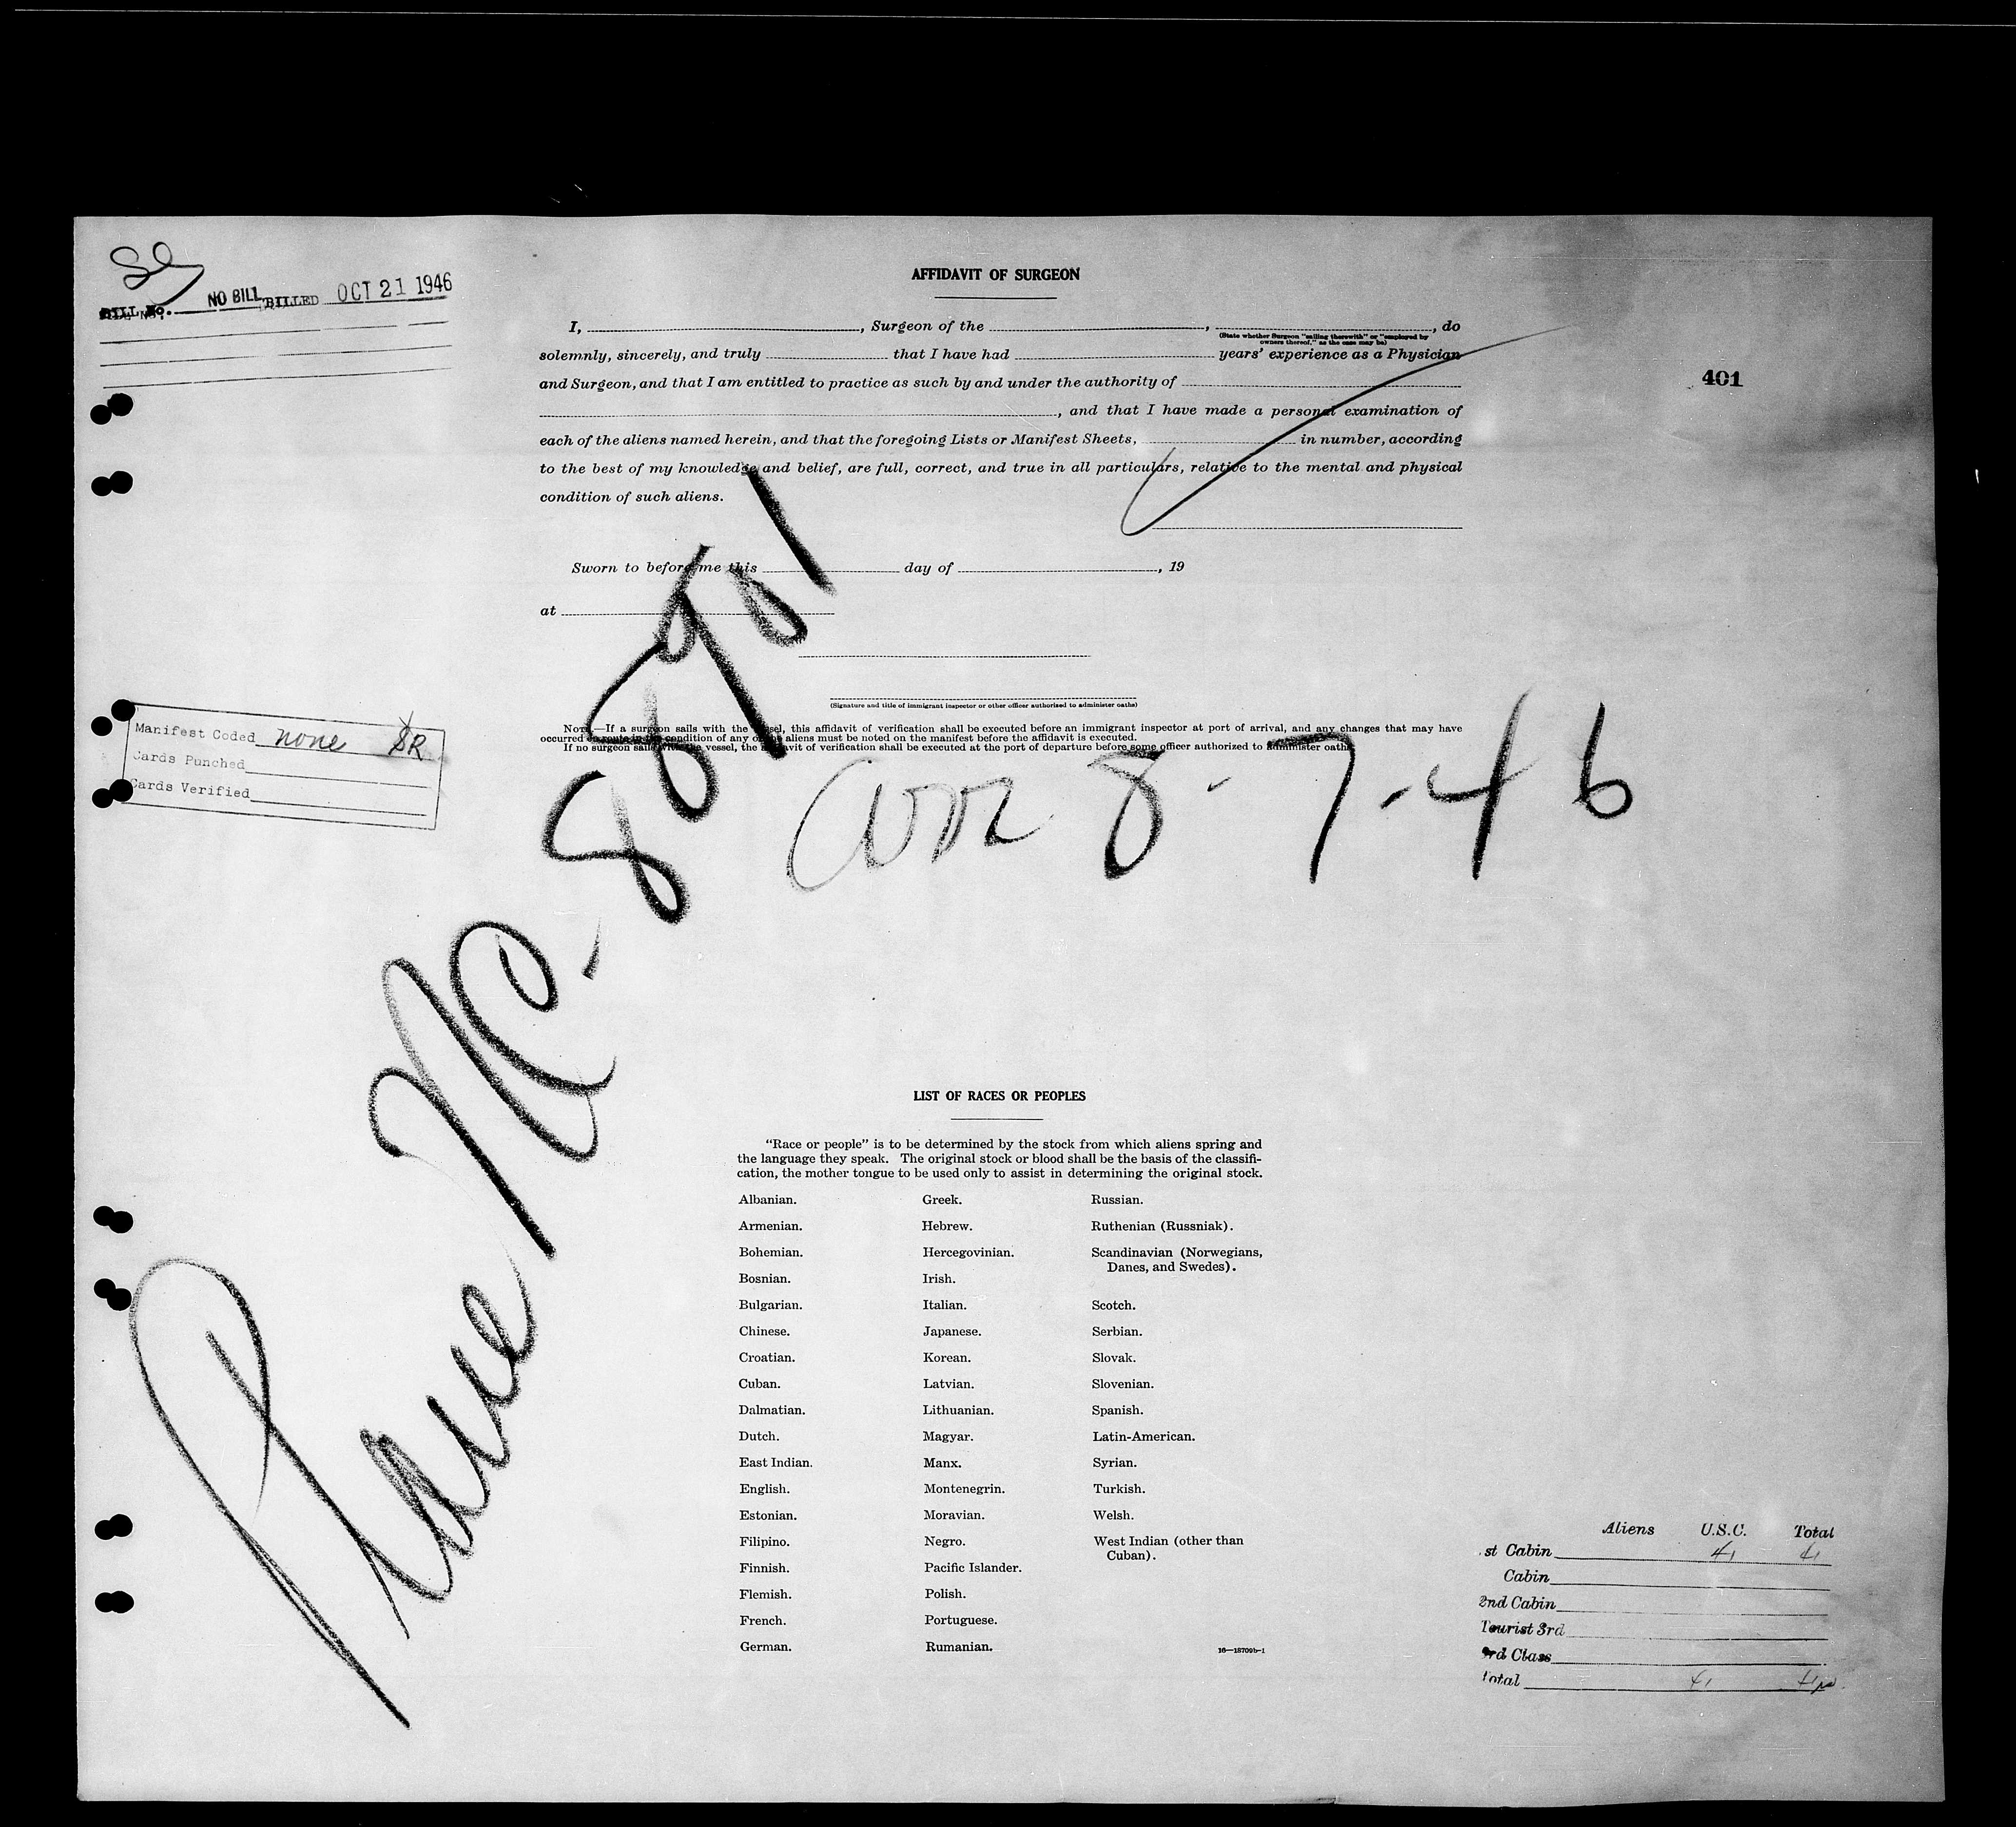 BILL No. NO BILL BILLED OCT 21 1946
AFFIDAVIT OF SURGEON
I, , Surgeon of the , , do
(State whether Surgeon "sailing therewith" or "employed by
owners thereof," as the case may be)
solemnly, sincerely, and truly that I have had years' experience as a Physician
and Surgeon, and that I am entitled to practice as such by and under the authority of
401
, and that I have made a personal examination of
each of the aliens named herein, and that the foregoing Lists or Manifest Sheets, in number, according
to the best of my knowledge and belief, are full, correct, and true in all particulars, relative to the mental and physical
condition of such aliens.
Sworn to before me this day of , 19
at
(Signature and title of immigrant inspector or other officer authorized to administer oaths)
NOTE.—If a surgeon sails with the vessel, this affidavit of verification shall be executed before an immigrant inspector at port of arrival, and any changes that may have
occurred en route in the condition of any of the aliens must be noted on the manifest before the affidavit is executed.
If no surgeon sails with the vessel, the affidavit of verification shall be executed at the port of departure before some officer authorized to administer oaths.
Manifest Coded none SR
Cards Punched
Cards Verified
Plane NC-88901
arr 8-7-46
LIST OF RACES OR PEOPLES
"Race or people" is to be determined by the stock from which aliens spring and
the language they speak. The original stock or blood shall be the basis of the classifi-
cation, the mother tongue to be used only to assist in determining the original stock.
Albanian. Greek. Russian.
Armenian. Hebrew. Ruthenian (Russniak).
Bohemian. Hercegovinian. Scandinavian (Norwegians,
Danes, and Swedes).
Bosnian. Irish.
Bulgarian. Italian. Scotch.
Chinese. Japanese. Serbian.
Croatian. Korean. Slovak.
Cuban. Latvian. Slovenian.
Dalmatian. Lithuanian. Spanish.
Dutch. Magyar. Latin-American.
East Indian. Manx. Syrian.
English. Montenegrin. Turkish.
Estonian. Moravian. Welsh.
Filipino. Negro. West Indian (other than
Cuban).
Finnish. Pacific Islander.
Flemish. Polish.
French. Portuguese.
German. Rumanian.
16—18709b-1
Aliens U.S.C. Total
st Cabin 41 41
Cabin
2nd Cabin
Tourist 3rd
3rd Class
Total 41 41